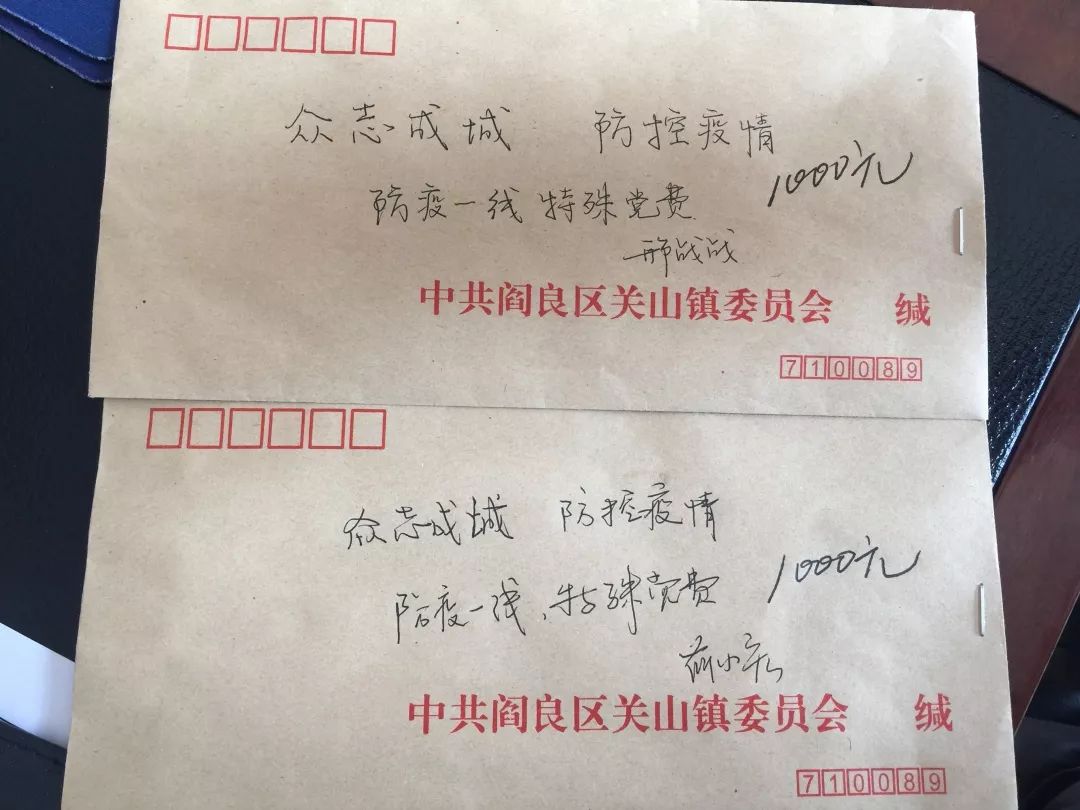 众志成城 防控疫情
1000元
防疫一线 特殊党费
邢战战
中共阎良区关山镇委员会 缄
710089
众志成城 防控疫情
1000元
防疫一线、特殊党费
中共阎良区关山镇委员会 缄
710089